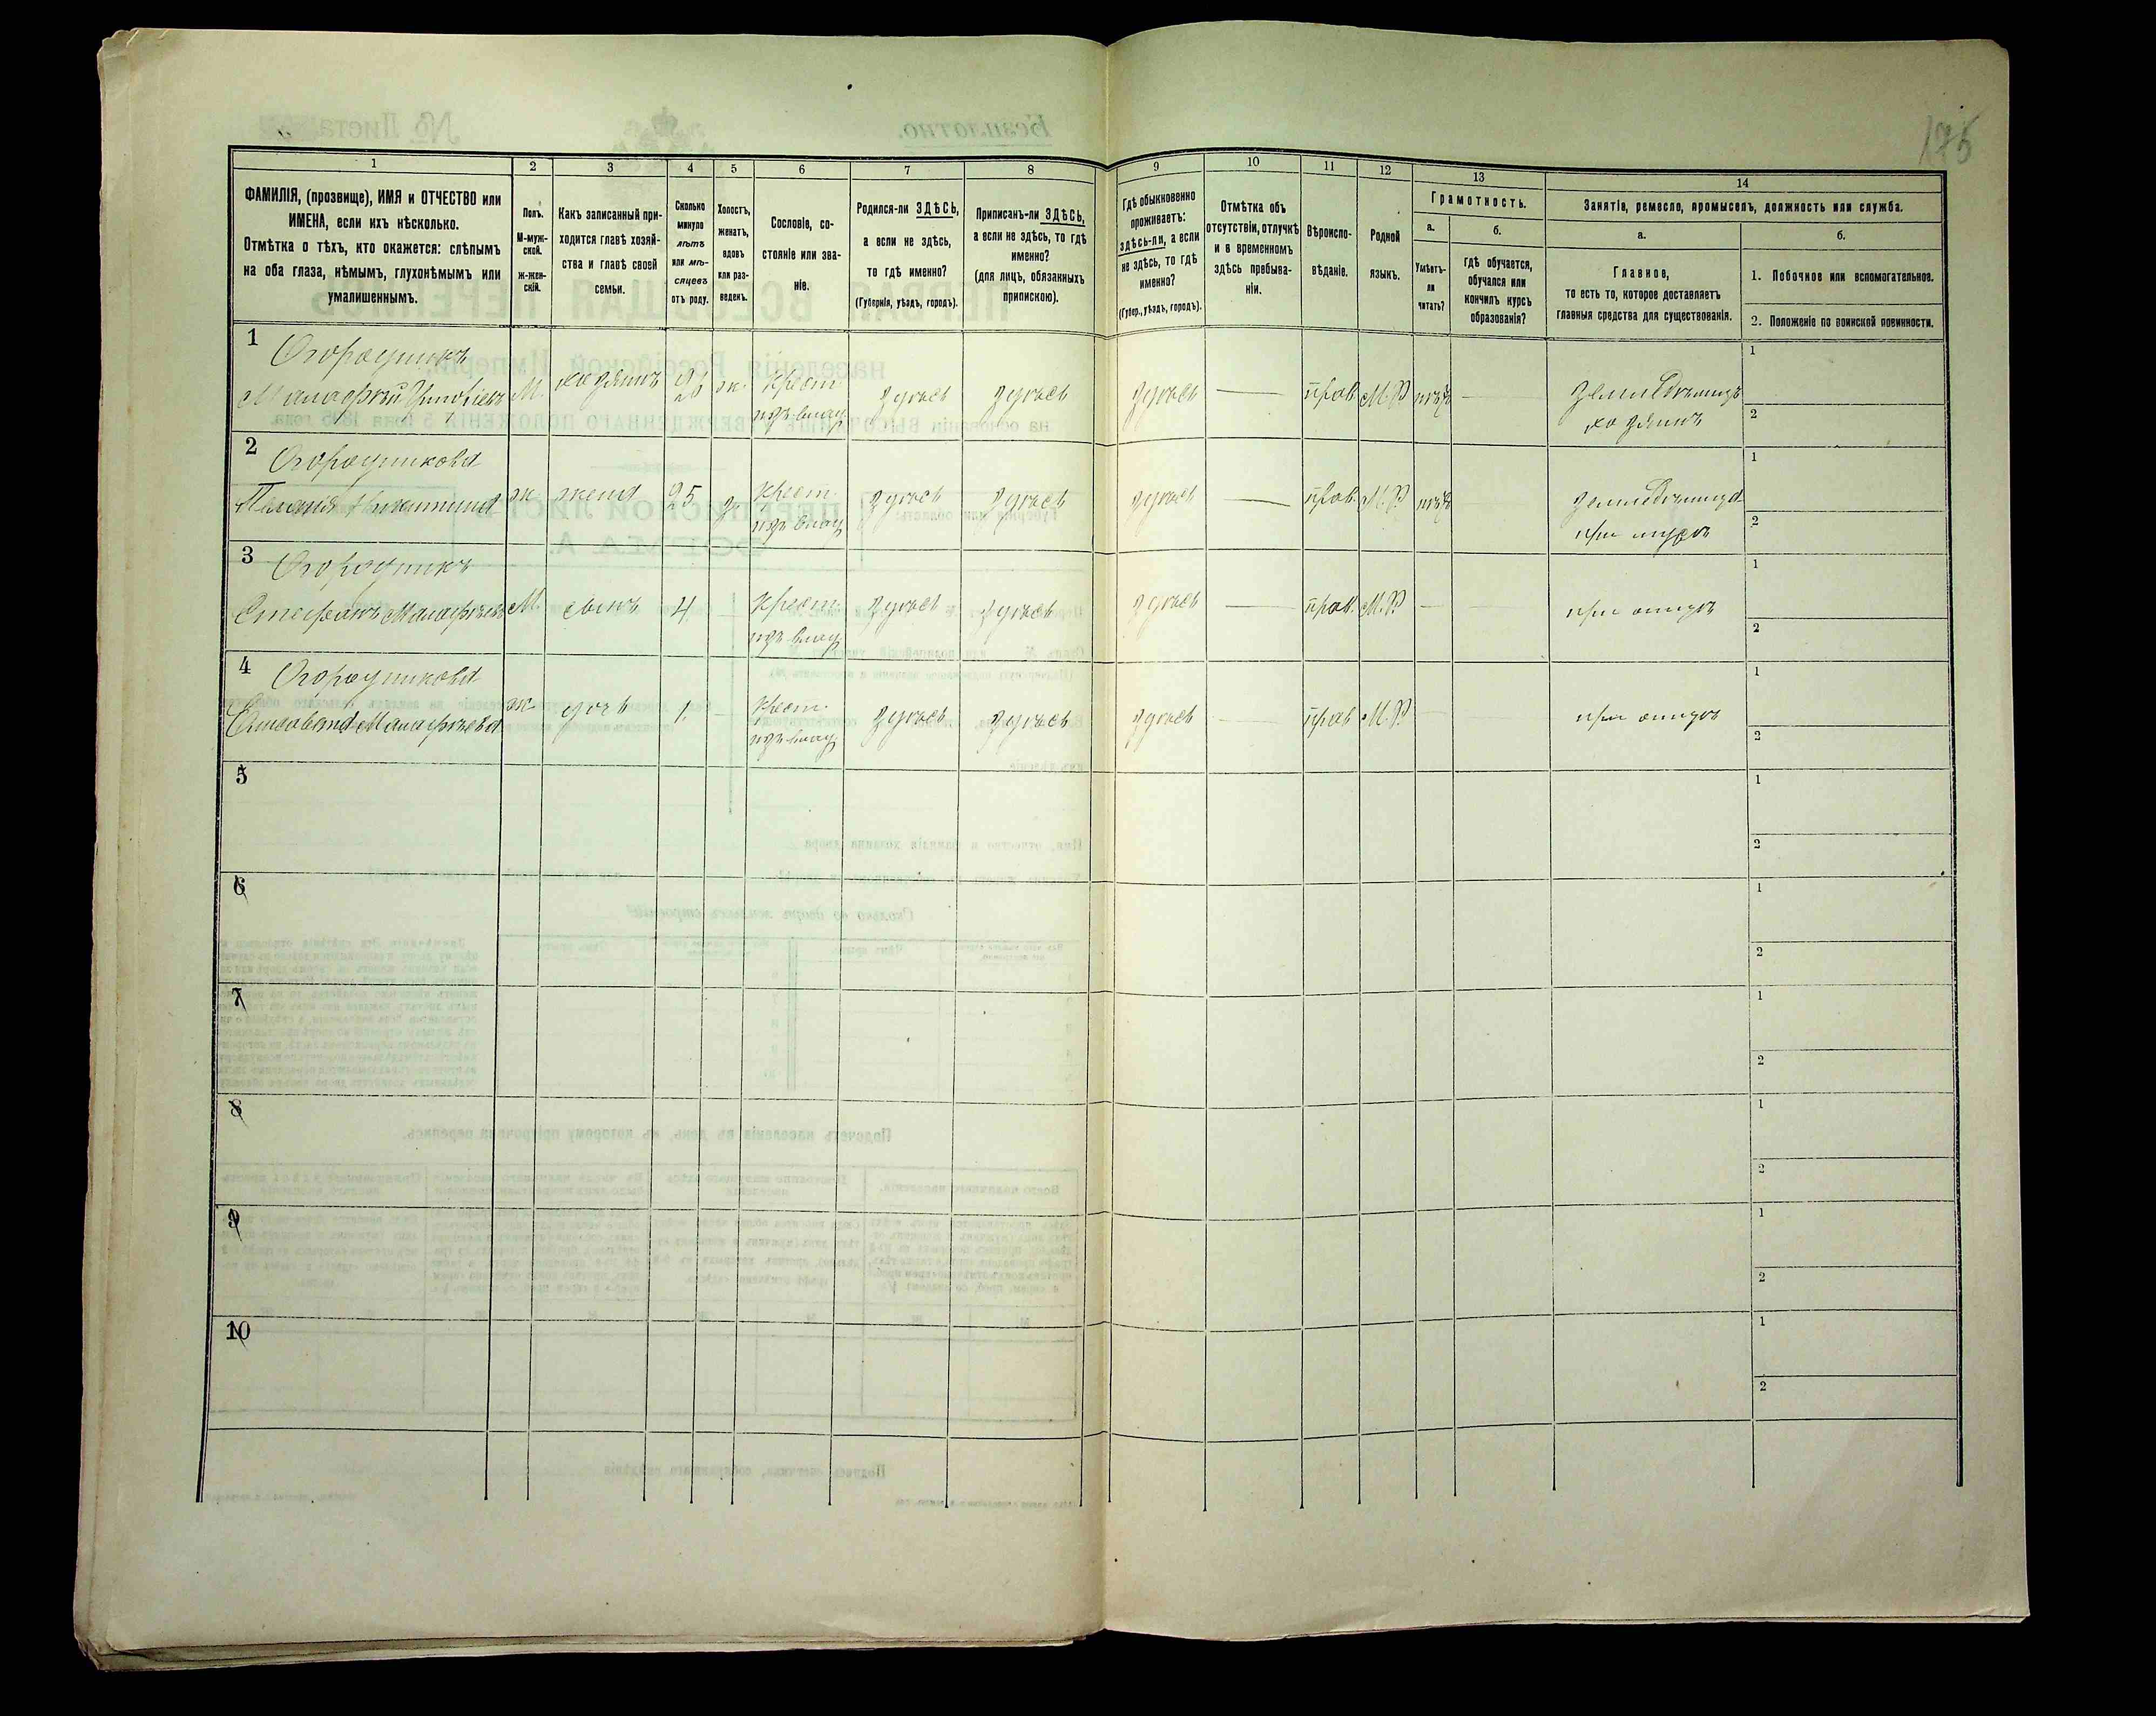 175
1
2
3
4
5
6
7
8
9
10
11
12
13
14
ФАМИЛІЯ, (прозвище), ИМЯ и ОТЧЕСТВО или
ИМЕНА, если ихъ нѣсколько.
Отмѣтка о тѣхъ, кто окажется: слѣпымъ
на оба глаза, нѣмымъ, глухонѣмымъ или
умалишеннымъ.
Полъ.
М-муж-
ской.
ж-жен-
скій.
Какъ записанный при-
ходится главѣ хозяй-
ства и главѣ своей
семьи.
Сколько
минуло
лѣтъ
или мѣ-
сяцевъ
отъ роду.
Холостъ,
женатъ,
вдовъ
или раз-
веденъ.
Сословіе, со-
стояніе или зва-
ніе.
Родился-ли ЗДѢСЬ,
а если не здѣсь,
то гдѣ именно?
(Губернія, уѣздъ, городъ).
Приписанъ-ли ЗДѢСЬ,
а если не здѣсь, то гдѣ
именно?
(для лицъ, обязанныхъ
припискою).
Гдѣ обыкновенно
проживаетъ:
здѣсь-ли, а если
не здѣсь, то гдѣ
именно?
(Губер., уѣздъ, городъ).
Отмѣтка объ
отсутствіи, отлучкѣ
и в временномъ
здѣсь пребыва-
ніи.
Вѣроиспо-
вѣданіе.
Родной
языкъ.
Грамотность.
а.
Умѣетъ-
ли
читать?
б.
гдѣ обучается,
обучался или
кончилъ курсъ
образованія?
Занятіе, ремесло, промыселъ, должность или служба.
а.
Главное,
то есть то, которое доставляетъ
главныя средства для существованія.
б.
1. Побочное или вспомогательное.
2. Положеніе по воинской повинности.
1
Огородникъ
Малафѣй М. хозяинъ 26 ж. Крест. здѣсь здѣсь здѣсь — прав. М.Р. нѣтъ — Земледѣлецъ
изъ влад. хозяинъ
1
2
2
Огородникова
Пелагія Никитина ж жена 25 з. Крест. здѣсь здѣсь здѣсь — прав. М.Р. нѣтъ Земледѣлица
изъ влад. при мужѣ
1
2
3
Огородникъ
Стефанъ Малафѣевъ М сынъ 4 — Крест. здѣсь здѣсь здѣсь — прав. М.Р. — при отцѣ
изъ влад.
1
2
4
Огородникова
Елисавета Малафѣева ж дочь 1 — Крест. здѣсь здѣсь здѣсь — прав М.Р. — при отцѣ
изъ влад.
1
2
5
1
2
6
1
2
7
1
2
8
1
2
9
1
2
10
1
2